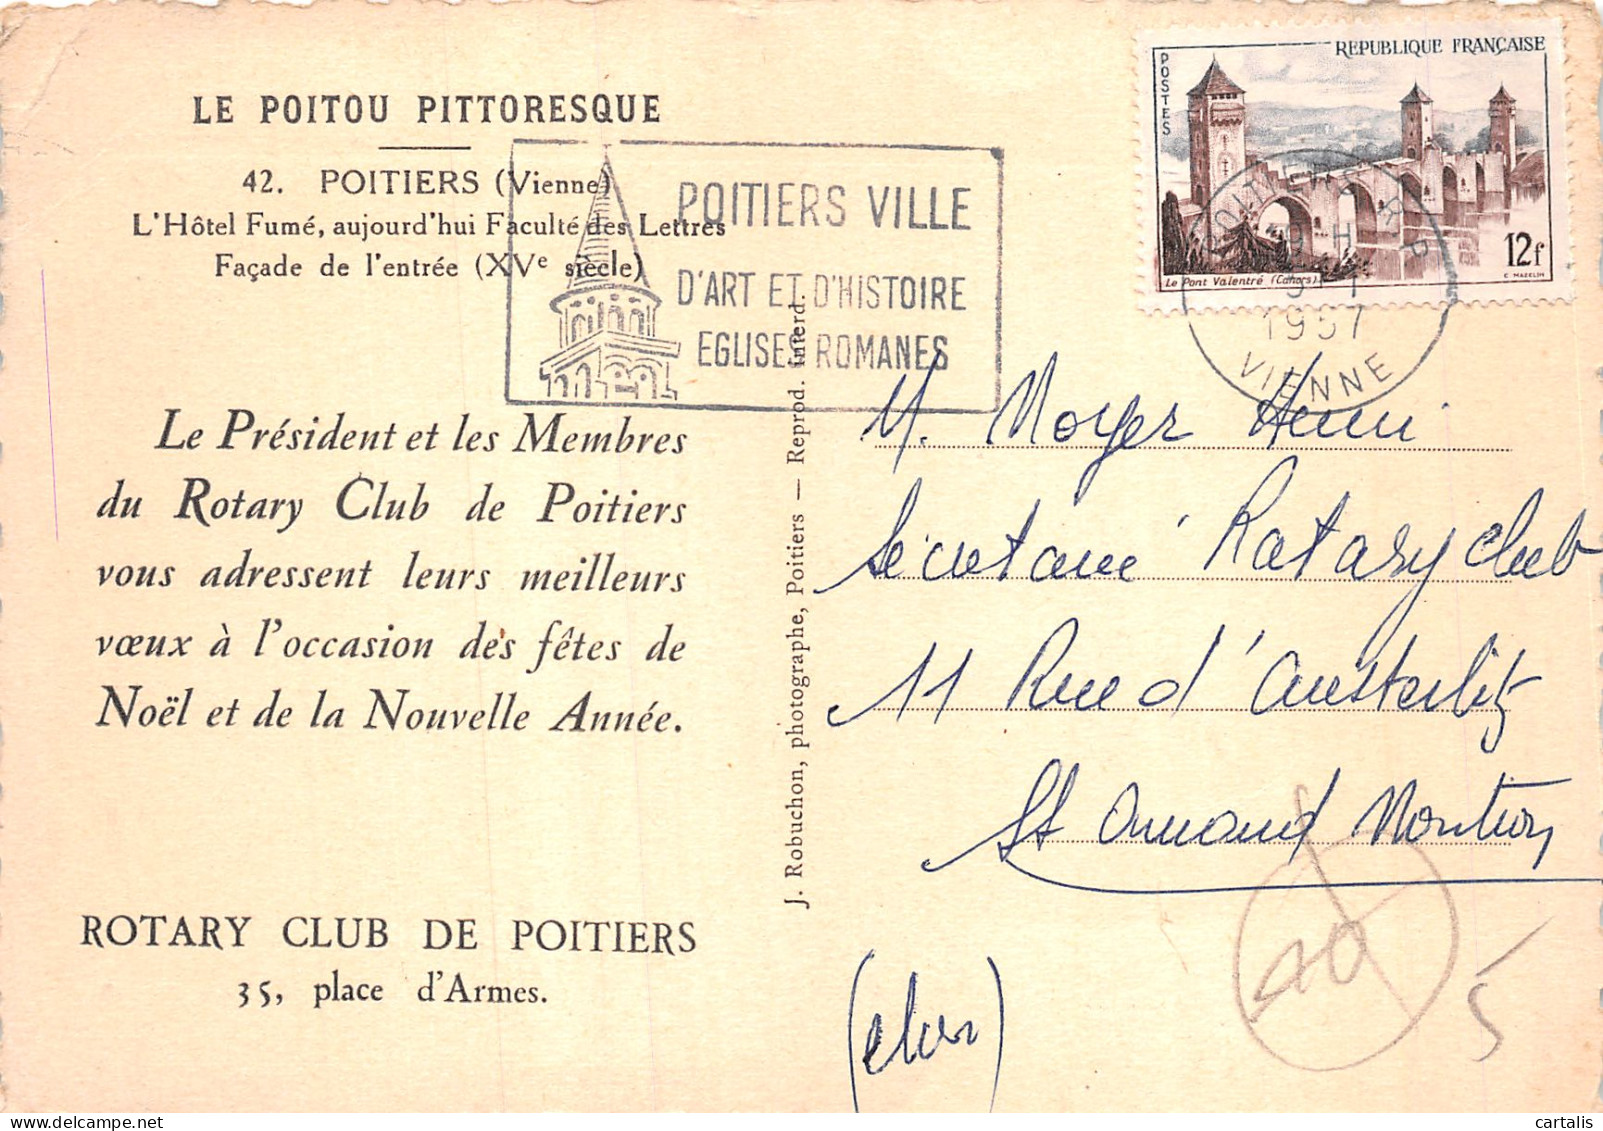 LE POITOU PITTORESQUE
42. POITIERS (Vienne)
L'Hôtel Fumé, aujourd'hui Faculté des Lettres
Façade de l'entrée (XVe siècle)
POITIERS VILLE
D'ART ET D'HISTOIRE
EGLISES ROMANES
REPUBLIQUE FRANÇAISE
POSTES
12f
Le Pont Valentré (Cahors)
C. MAZELIN
9 H
1957
VIENNE
Le Président et les Membres
du Rotary Club de Poitiers
vous adressent leurs meilleurs
vœux à l'occasion des fêtes de
Noël et de la Nouvelle Année.
ROTARY CLUB DE POITIERS
35, place d'Armes.
J. Robuchon, photographe, Poitiers — Reprod. interd.
M. Moyer Henri
Secrétaire Rotary Club
11 Rue d'Austerlitz
St Amand Montron
(cher)
10
5
cartalis | delcampe.net